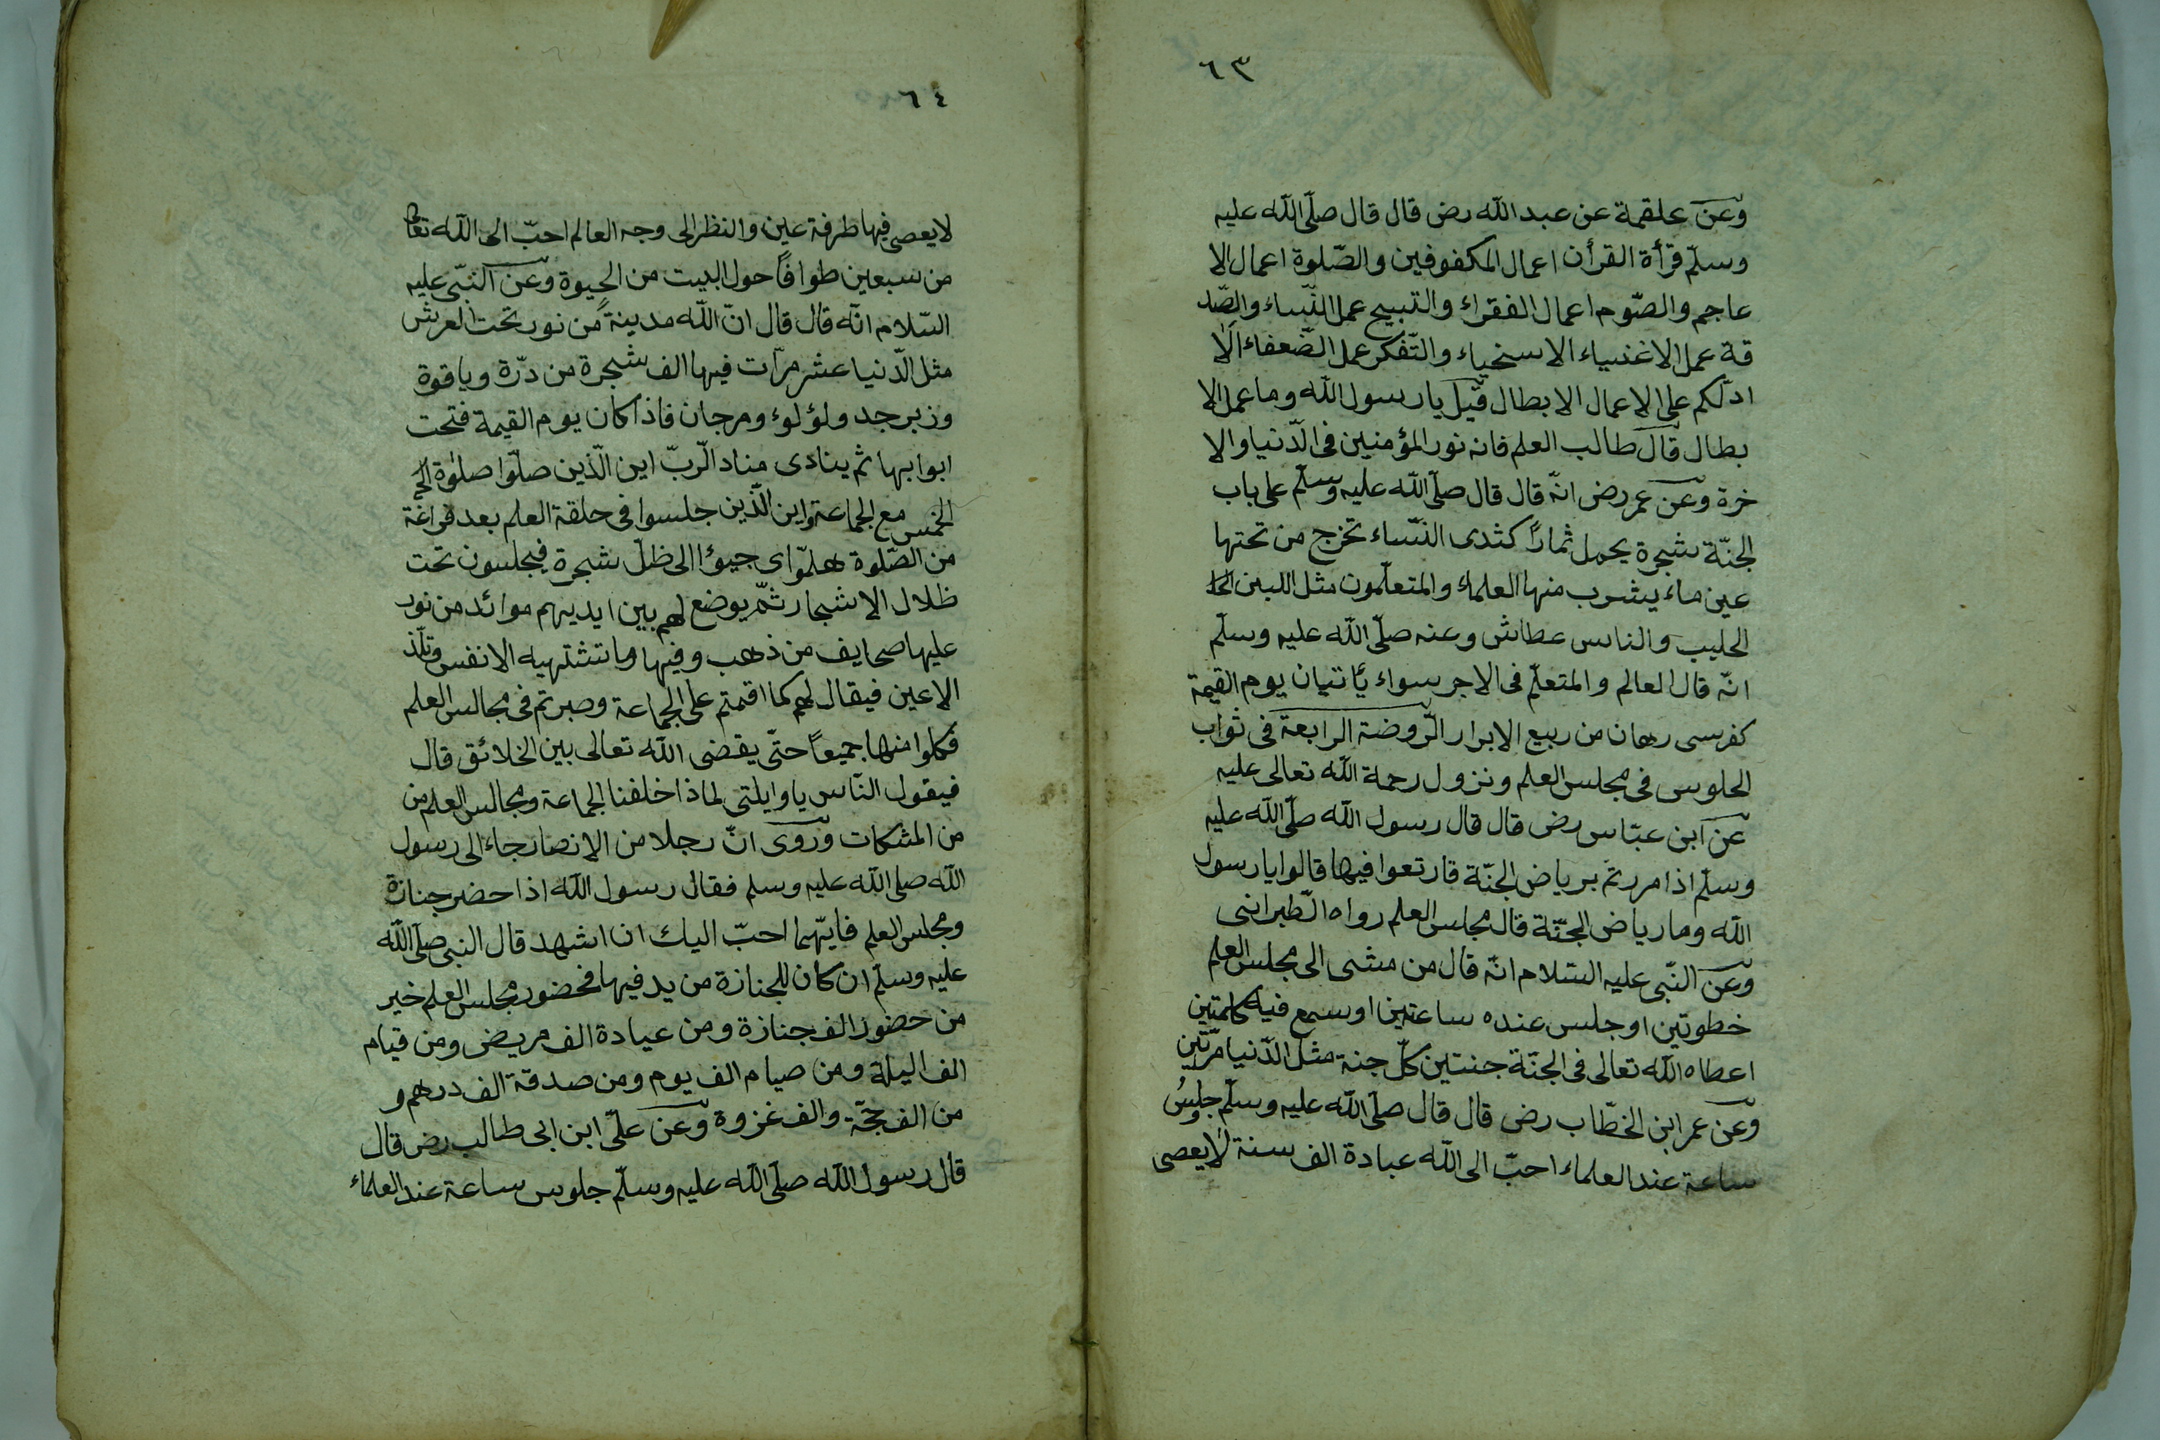 ٦٣
وعن علقمة عن عبد الله رض قال قال صلّى الله عليه
وسلّم قرأة القرأن اعمال المكفوفين والصّلوة اعمال الا
عاجم والصّوم اعمال الفقراء والتبيح عمل النّساء والصّد
قة عمل الاغنياء الاسخياء والتّفكر عمل الضّعفاء الا
ادلّكم على الاعمال الابطال قيل يا رسول الله وما عمل الا
بطال قال طالب العلم فانه نور المؤمنين فى الدّنيا والا
خرة وعن عمر رض انّه قال قال صلّى الله عليه وسلّم على باب
الجنّة شجرة يحمل ثمارًا كثدى النّساء تخرج من تحتها
عين ماء يشرب منها العلماء والمتعلّمون مثل اللبن
الحليب والناس عطاش وعنه صلّى الله عليه وسلّم
انّه قال العالم والمتعلّم فى الاجر سواء يأتيان يوم القيمة
كفرسى رهان من ربيع الابرار الرّوضة الرابعة فى ثواب
الجلوس فى مجلس العلم ونزول رحمة الله تعالى عليه
عن ابن عبّاس رض قال قال رسول الله صلّى الله عليه
وسلّم اذا مررتم برياض الجنّة فارتعوا فيها قالوا يا رسول
الله وما رياض الجنّة قال مجلس العلم رواه الطّبرانى
وعن النّبى عليه السّلام انّه قال من مشى الى مجلس العلم
خطوتين او جلس عنده ساعتين او سمع فيه كلمتين
اعطاه الله تعالى فى الجنّة جنتين كلّ جنة مثل الدّنيا مرّتين
وعن عمر ابن الخطّاب رض قال قال صلّى الله عليه وسلّم جلوس
ساعة عند العلماء احبّ الى الله عبادة الف سنة لا يعصى
٦٤
لا يعصى فيها طرفة عين والنظر الى وجه العالم احبّ الى الله تعالى
من سبعين طوافًا حول البيت من الحيوة وعن النّبى عليه
السّلام انّه قال قال انّ الله مدينةً من نور تحت العرش
مثل الدّنيا عشر مرّات فيها الف شجرة من درّة وياقوة
وزبرجد ولؤلوء ومرجان فاذا كان يوم القيمة فتحت
ابوابها ثم ينادى مناد الرّبّ اين الّذين صلّوا صلوة
الخمس مع الجماعة واين الّذين جلسوا فى حلقة العلم بعد فراغة
من الصّلوة هلمّوا اى جيؤا الى ظلّ شجرة فيجلسون تحت
ظلال الاشجار ثمّ يوضع لهم بين ايديهم موائد من نور
عليها صحايف من ذهب وفيها وما تشتهيه الانفس وتلّذ
الاعين فيقال لهم كما اقمتم على الجماعة وصبرتم فى مجالس العلم
فكلوا منها جميعًا حتّى يقضى الله تعالى بين الخلائق قال
فيقول النّاس يا وايلتى لماذا خلفنا الجماعة ومجالس العلم من
من المشكات وروى انّ رجلا من الانصار جاء الى رسول
الله صلى الله عليه وسلم فقال رسول الله اذا حضر جنازة
ومجلس العلم فايّهما احبّ اليك ان اشهد قال النبى صلّى الله
عليه وسلّم ان كان للجنازة من يدفيها فحضور مجلس العلم خير
من حضور الف جنازة ومن عيادة الف مريض ومن قيام
الف اليلة ومن صيام الف يوم ومن صدقة الف درهم و
من الف حجّة والف غزوة وعن علّى ابن ابى طالب رض قال
قال رسول الله صلّى الله عليه وسلّم جلوس ساعة عند العلماء